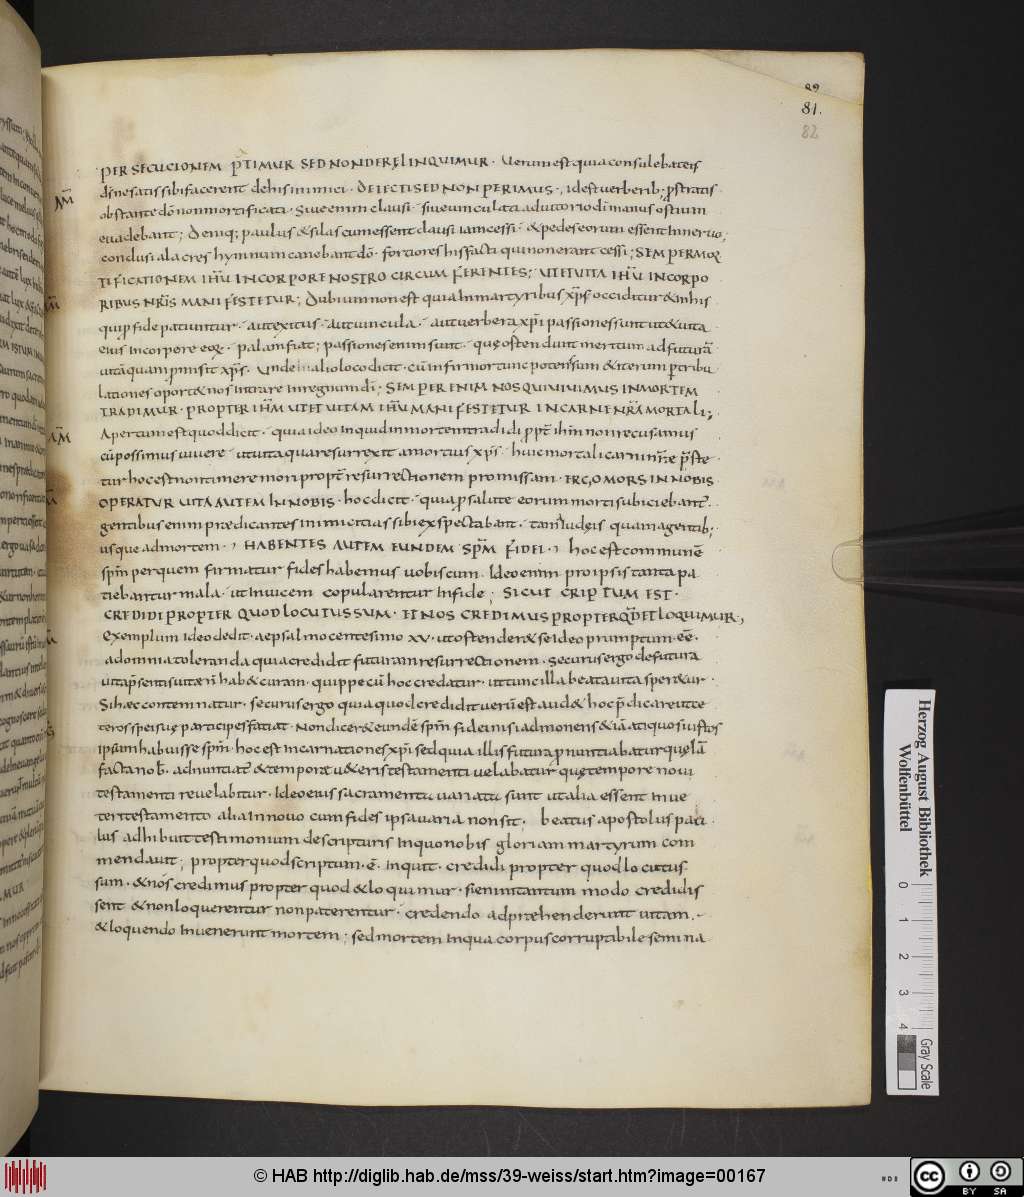 82
81.
82
PER SECUCIONEM P̄TIMUR SED NON DERELINQUIMUR · Uerum est quia consulebat eis
d̄s ne satis sibi facerent de his inimici · DEIECTI SED NON PERIMUS ·, id est uerberib; prostratis
obstante dō non mortificati · Siue enim clausi · siue uinculati adiutorio dī manus ostium
euadebant; Deniq; paulus & silas cum essent clausi iam cessi · & pedes eorum essent In neruo;
conclusi alacres hymnum canebant dō · fortiores his facti qui non erant cessi; SEMPER MOR
TIFICATIONEM IHŪ IN CORPORE NOSTRO CIRCUM FERENTES; UT ET UITA IHŪ IN CORPO
RIBUS NRĪS MANIFESTETUR; Dubium non est quia In martyribus xp̄s occiditur & in his
qui p fide patiuntur · aut exitus · aut uincula · aut uerbera xp̄i passiones sunt ut & uita
eius In corpere eor · palam fiat; passiones enim sunt · quę ostendunt meritum ad futurā
uitā quam pmisit xp̄s · Unde In alio loco dicit · cū Infirmor tunc potens sum & iterum p tribu
lationes oport& nos Intrare In regnum dī; SEMPER ENIM NOS QUI UIUIMUS IN MORTEM
TRADIMUR · PROPTER IHM̄ UT ET UITAM IHŪ MANIFESTETUR IN CARNE NRĀ MORTALI;
Apertum est quod dicit · quia ideo Inquid In mortem tradi di ppt̄ ihm̄ non recusamus
cū possimus uiuere · ut uita qua resurrexit a mortuis xp̄s · huic mortali carni nr̄e pste
tur hoc est non timere mori propt̄ resurrectionem promissam · ERGO MORS IN NOBIS
OPERATUR UITA AUTEM IN NOBIS · hoc dicit · quia p salute eorum morti subiciebant̄
gentibus enim prædicantes inimicitias sibi exspectabant · tam Iudęis quam a gentib;
usque ad mortem ·, HABENTES AUTEM EUNDEM SPM̄ FIDEI ·, hoc est communē
spm̄ per quem firmatur fides habemus uobiscum · Ideo enim pro ipsis tanta pa
tiebantur mala · ut Inuicem copularentur In fide; SICUT SCRIPTUM EST ·
CREDIDI PROPTER QUOD LOCUTUS SUM · ET NOS CREDIMUS PROPTER QD̄ ET LOQUIMUR,
Exemplum ideo dedit · a psalmo centesimo xv · ut ostender& se ideo prumptum eē ·
ad omnia toleranda quia credidit futuram resurrectionem · Securus ergo de futura
uita psentis uitæ ñ hab& curam · quippe cū hoc credatur · ut tunc illa beata uita sper&ur ·
Si hæc contemnatur · securus ergo quia quod credidit uerū est aud& hoc p̄dicare ut ce
teros spei suę participes faciat · Non dicer& eundē spm̄ fidei nisi admonens & iā antiquos iustos
ipsum habuisse spm̄ · hoc est Incarnationes xp̄i · sed quia illis futura pnuntiabatur quę Iā
facta nob̄ · adnuntiat̄ & tempore u&eris testamenti uelabatur quę tempore noui
testamenti reuelabitur · Ideo eius sacramenta uariata sunt ut alia essent In ue
teri testamento alia In nouo cum fides ipsa uaria non sit; beatus apostolus pau
lus adhibuit testimonium de scripturis In quo nobis gloriam martyrum com
mendauit; propter quod scriptum · ē · Inquit · credidi propter quod locutus
sum · & nos credimus propter quod & loquimur · si enim tantum modo credidis
sent & non loquerentur non paterentur · credendo adpræhenderunt uitam ·
& loquendo Inuenerunt mortem; sed mortem In qua corpus corruptibile semina
Herzog August Bibliothek
Wolfenbüttel
0 1 2 3 4
Gray Scale
© HAB http://diglib.hab.de/mss/39-weiss/start.htm?image=00167
cc BY SA